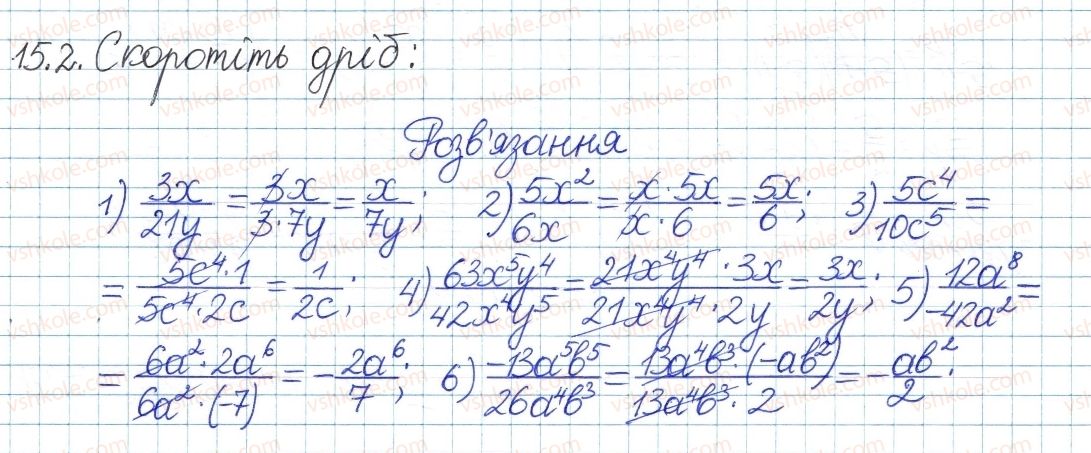 15.2. Скоротіть дріб:
Розв'язання
1) 3x/21y = 3·x/3·7y = x/7y; 2) 5x²/6x = x·5x/x·6 = 5x/6; 3) 5c⁴/10c⁵ =
= 5c⁴·1/5c⁴·2c = 1/2c; 4) 63x⁵y⁴/42x⁴y⁵ = 21x⁴y⁴·3x/21x⁴y⁴·2y = 3x/2y; 5) 12a⁸/-42a² =
= 6a²·2a⁶/6a²·(-7) = -2a⁶/7; 6) -13a⁵b⁵/26a⁴b³ = 13a⁴b³·(-ab²)/13a⁴b³·2 = -ab²/2.